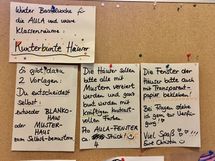 Winter Bastelwoche
die AULA und unsere
Klassenräume:
Kunterbunte Häuser
Es gibt dazu
2 Vorlagen.
Du entscheidest
selbst:
entweder BLANKO-
HAUS
oder MUSTER-
HAUS
zum Selbst-bemustern
Die Häuser sollen
bitte alle mit
Mustern verziert
werden und ganz
bunt werden mit
kräftigen
Farben!
Pro AULA-FENSTER
Stück!
4
Die Fenster der
Häuser bitte auch
mit Transparent-
papier bekleben.
Bei Fragen stehe
ich gern zur Verfü-
gung!
Viel Spaß
Eure